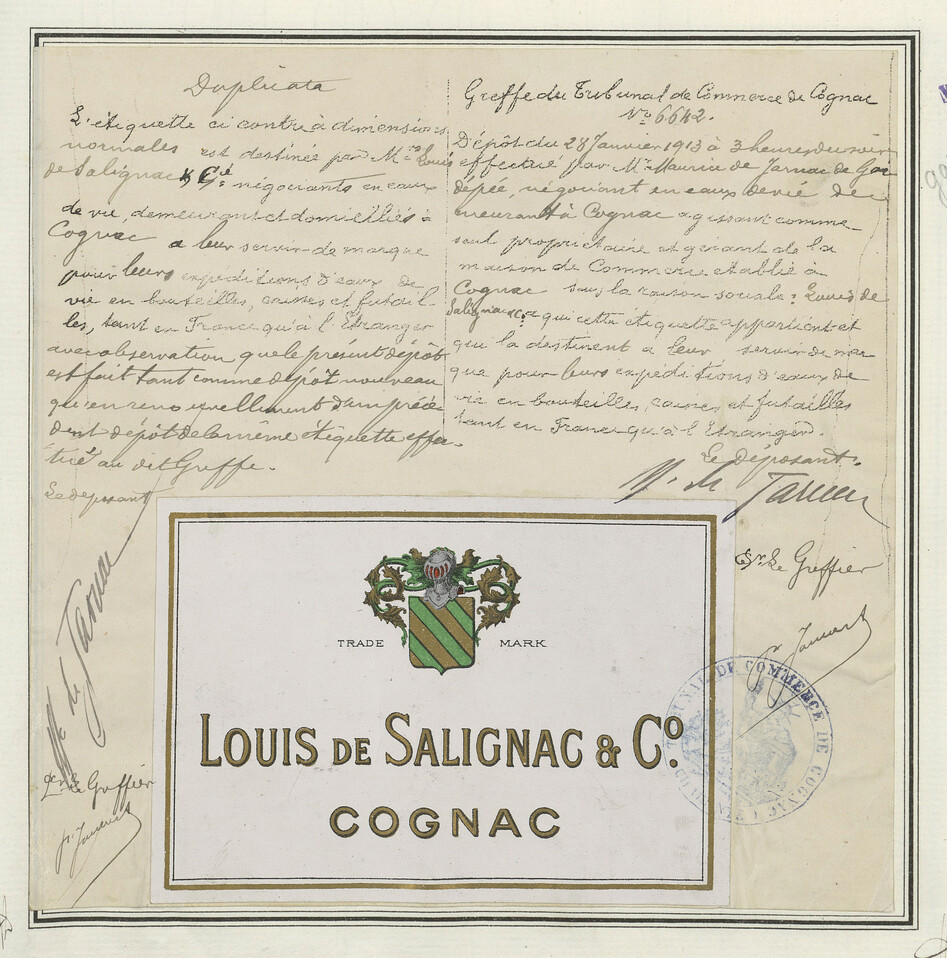 Duplicata
L'étiquette ci contre à dimensions
normales est destinée par Mrs Louis
de Salignac & Cie négociants en eaux
de vie, demeurant et domiciliés à
Cognac a leur servir de marque
pour leurs expéditions d'eaux de
vie en bouteilles, caisses et futail
les, tant en France qu'à l'Etranger
avec observation que le présent dépôt
est fait tant comme dépôt nouveau
qu'en renouvellement d'un précé
dent dépôt de la même étiquette effec
tué au dit Greffe.
Le déposant
M. de Jarnac
Le Greffier
Greffe du Tribunal de Commerce de Cognac
No 6642.
Dépôt du 28 Janvier 1913 à 3 heures du soir
effectué par Mr Maurice de Jarnac de Gar
dépée, négociant en eaux de vie de
meurant à Cognac agissant comme
seul propriétaire et gérant de la
maison de Commerce établie à
Cognac sous la raison sociale: Louis de
Salignac & Co a qui cette étiquette appartient et
qui la destinent a leur servir de mar
que pour leurs expéditions d'eaux de
vie en bouteilles, caisses et futailles
tant en France qu'à l'Etranger.
Le Déposant.
M. de Jarnac
Le Greffier
TRADE MARK
LOUIS DE SALIGNAC & Co.
COGNAC
TRIBUNAL DE COMMERCE DE COGNAC